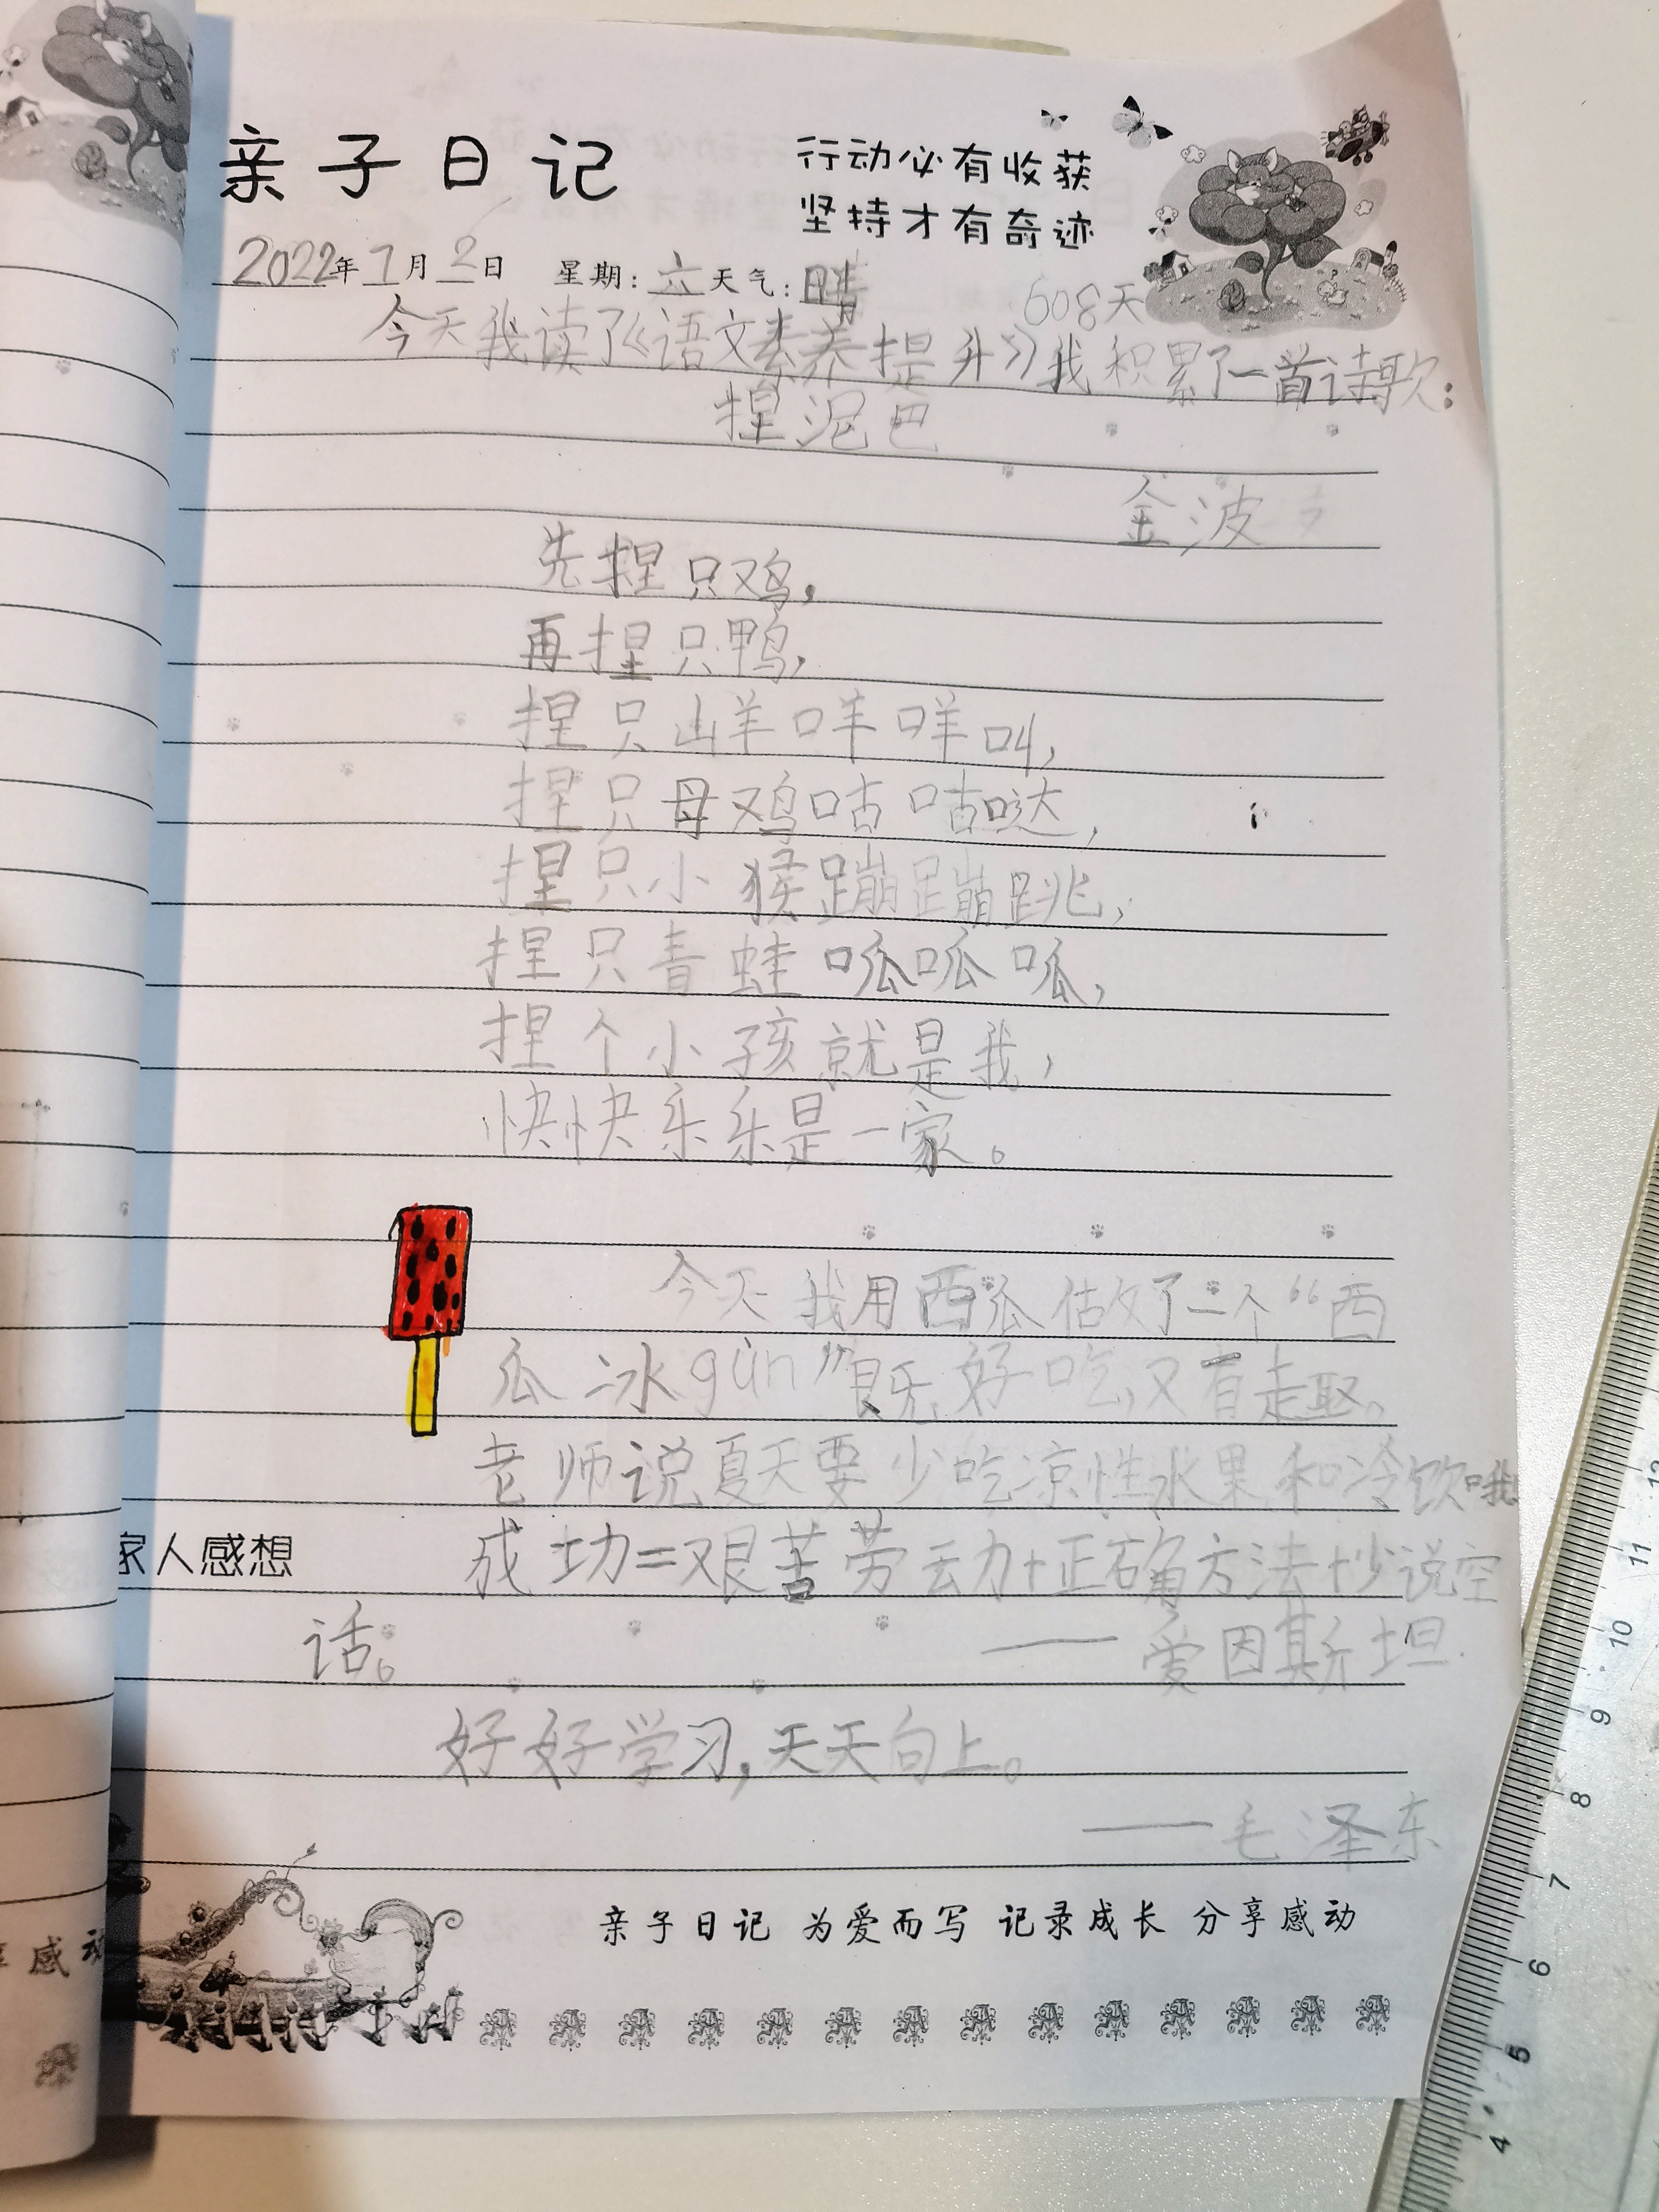 亲子日记
行动必有收获
坚持才有奇迹
2022年7月2日 星期:六天气:晴
608天
今天我读了《语文素养提升》我积累了一首诗歌:
捏泥巴
金波
先捏只鸡,
再捏只鸭,
捏只山羊咩咩叫,
捏只母鸡咕咕哒,
捏只小猴蹦蹦跳,
捏只青蛙呱呱呱,
捏个小孩就是我,
快快乐乐是一家。
今天我用西瓜做了一个“西
瓜冰gùn”既好吃,又有趣。
老师说夏天要少吃凉性水果和冷饮哦
家人感想
成功=艰苦劳动+正确方法+少说空
话。
——爱因斯坦
好好学习,天天向上。
——毛泽东
亲子日记 为爱而写 记录成长 分享感动
感动
12
11
10
9
8
7
6
5
4